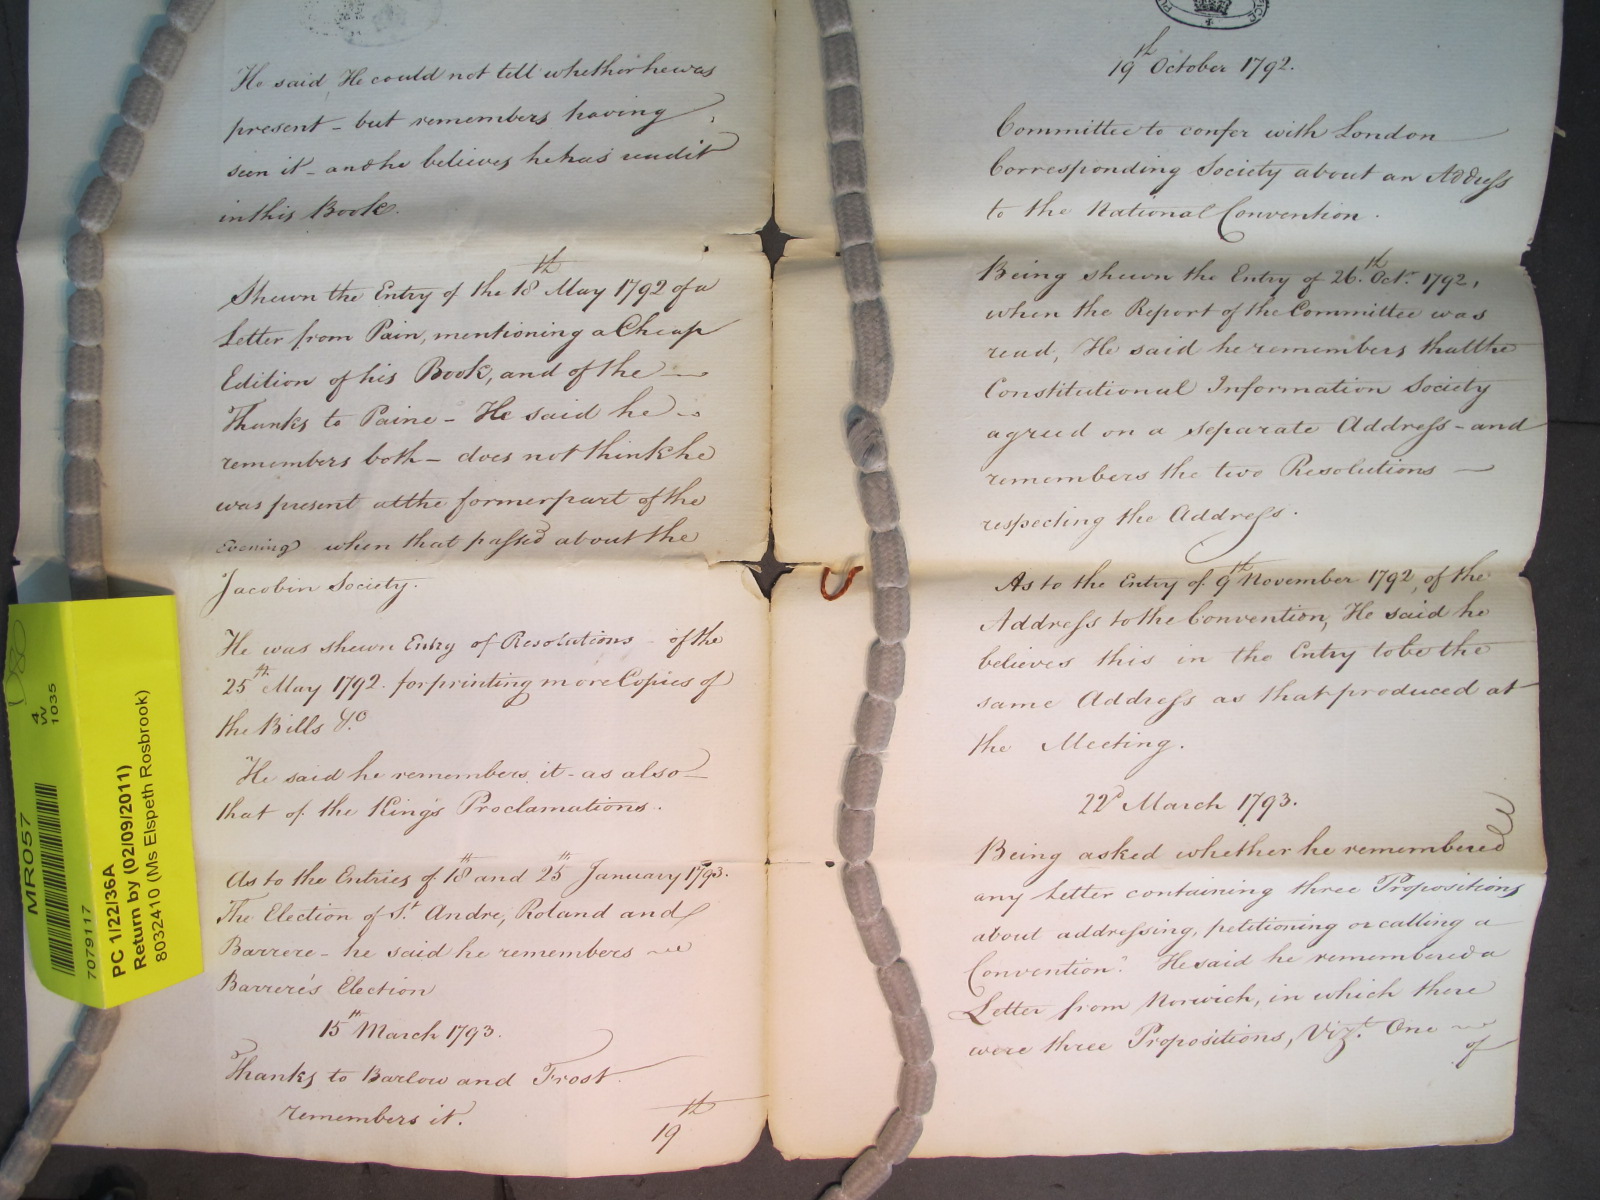 He said, He could not tell whether he was
present - but remembers having
seen it - and he believes he has read it
in this Book.
Shewn the Entry of the 18th May 1792 of a
Letter from Pain, mentioning a Cheap
Edition of his Book, and of the
Thanks to Paine - He said he
remembers both - does not think he
was present at the former part of the
Evening when that passed about the
Jacobin Society.
He was shewn Entry of Resolutions of the
25th May 1792. for printing more Copies of
the Bills &c
He said he remembers it - as also
that of the King's Proclamations.
As to the Entries of 18th and 25th January 1793.
The Election of St. Andre, Roland and
Barrere - he said he remembers
Barrere's Election
15th March 1793.
Thanks to Barlow and Frost
remembers it.
19th
19th October 1792.
Committee to confer with London
Corresponding Society about an Address
to the National Convention.
Being shewn the Entry of 26th. Octr. 1792,
when the Report of the Committee was
read, He said he remembers that the
Constitutional Information Society
agreed on a separate Address - and
remembers the two Resolutions
respecting the Address.
As to the Entry of 9th November 1792, of the
Address to the Convention, He said he
believes this in the Entry to be the
same Address as that produced at
the Meeting.
22d March 1793.
Being asked whether he remembered
any Letter containing three Propositions
about addressing, petitioning or calling a
Convention? He said he remembered a
Letter from Norwich, in which there
were three Propositions, Vizt. One
of
MR057
7079117
4
W
1035
PC 1/22/36A
Return by (02/09/2011)
8032410 (Ms Elspeth Rosbrook)